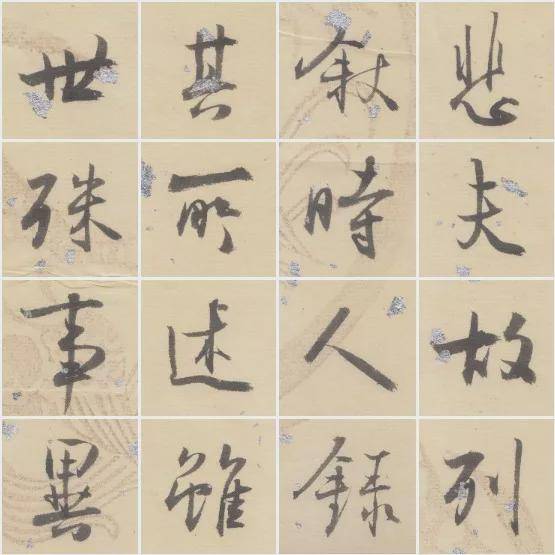 悲夫故列
叙時人錄
其所述雖
世殊事異